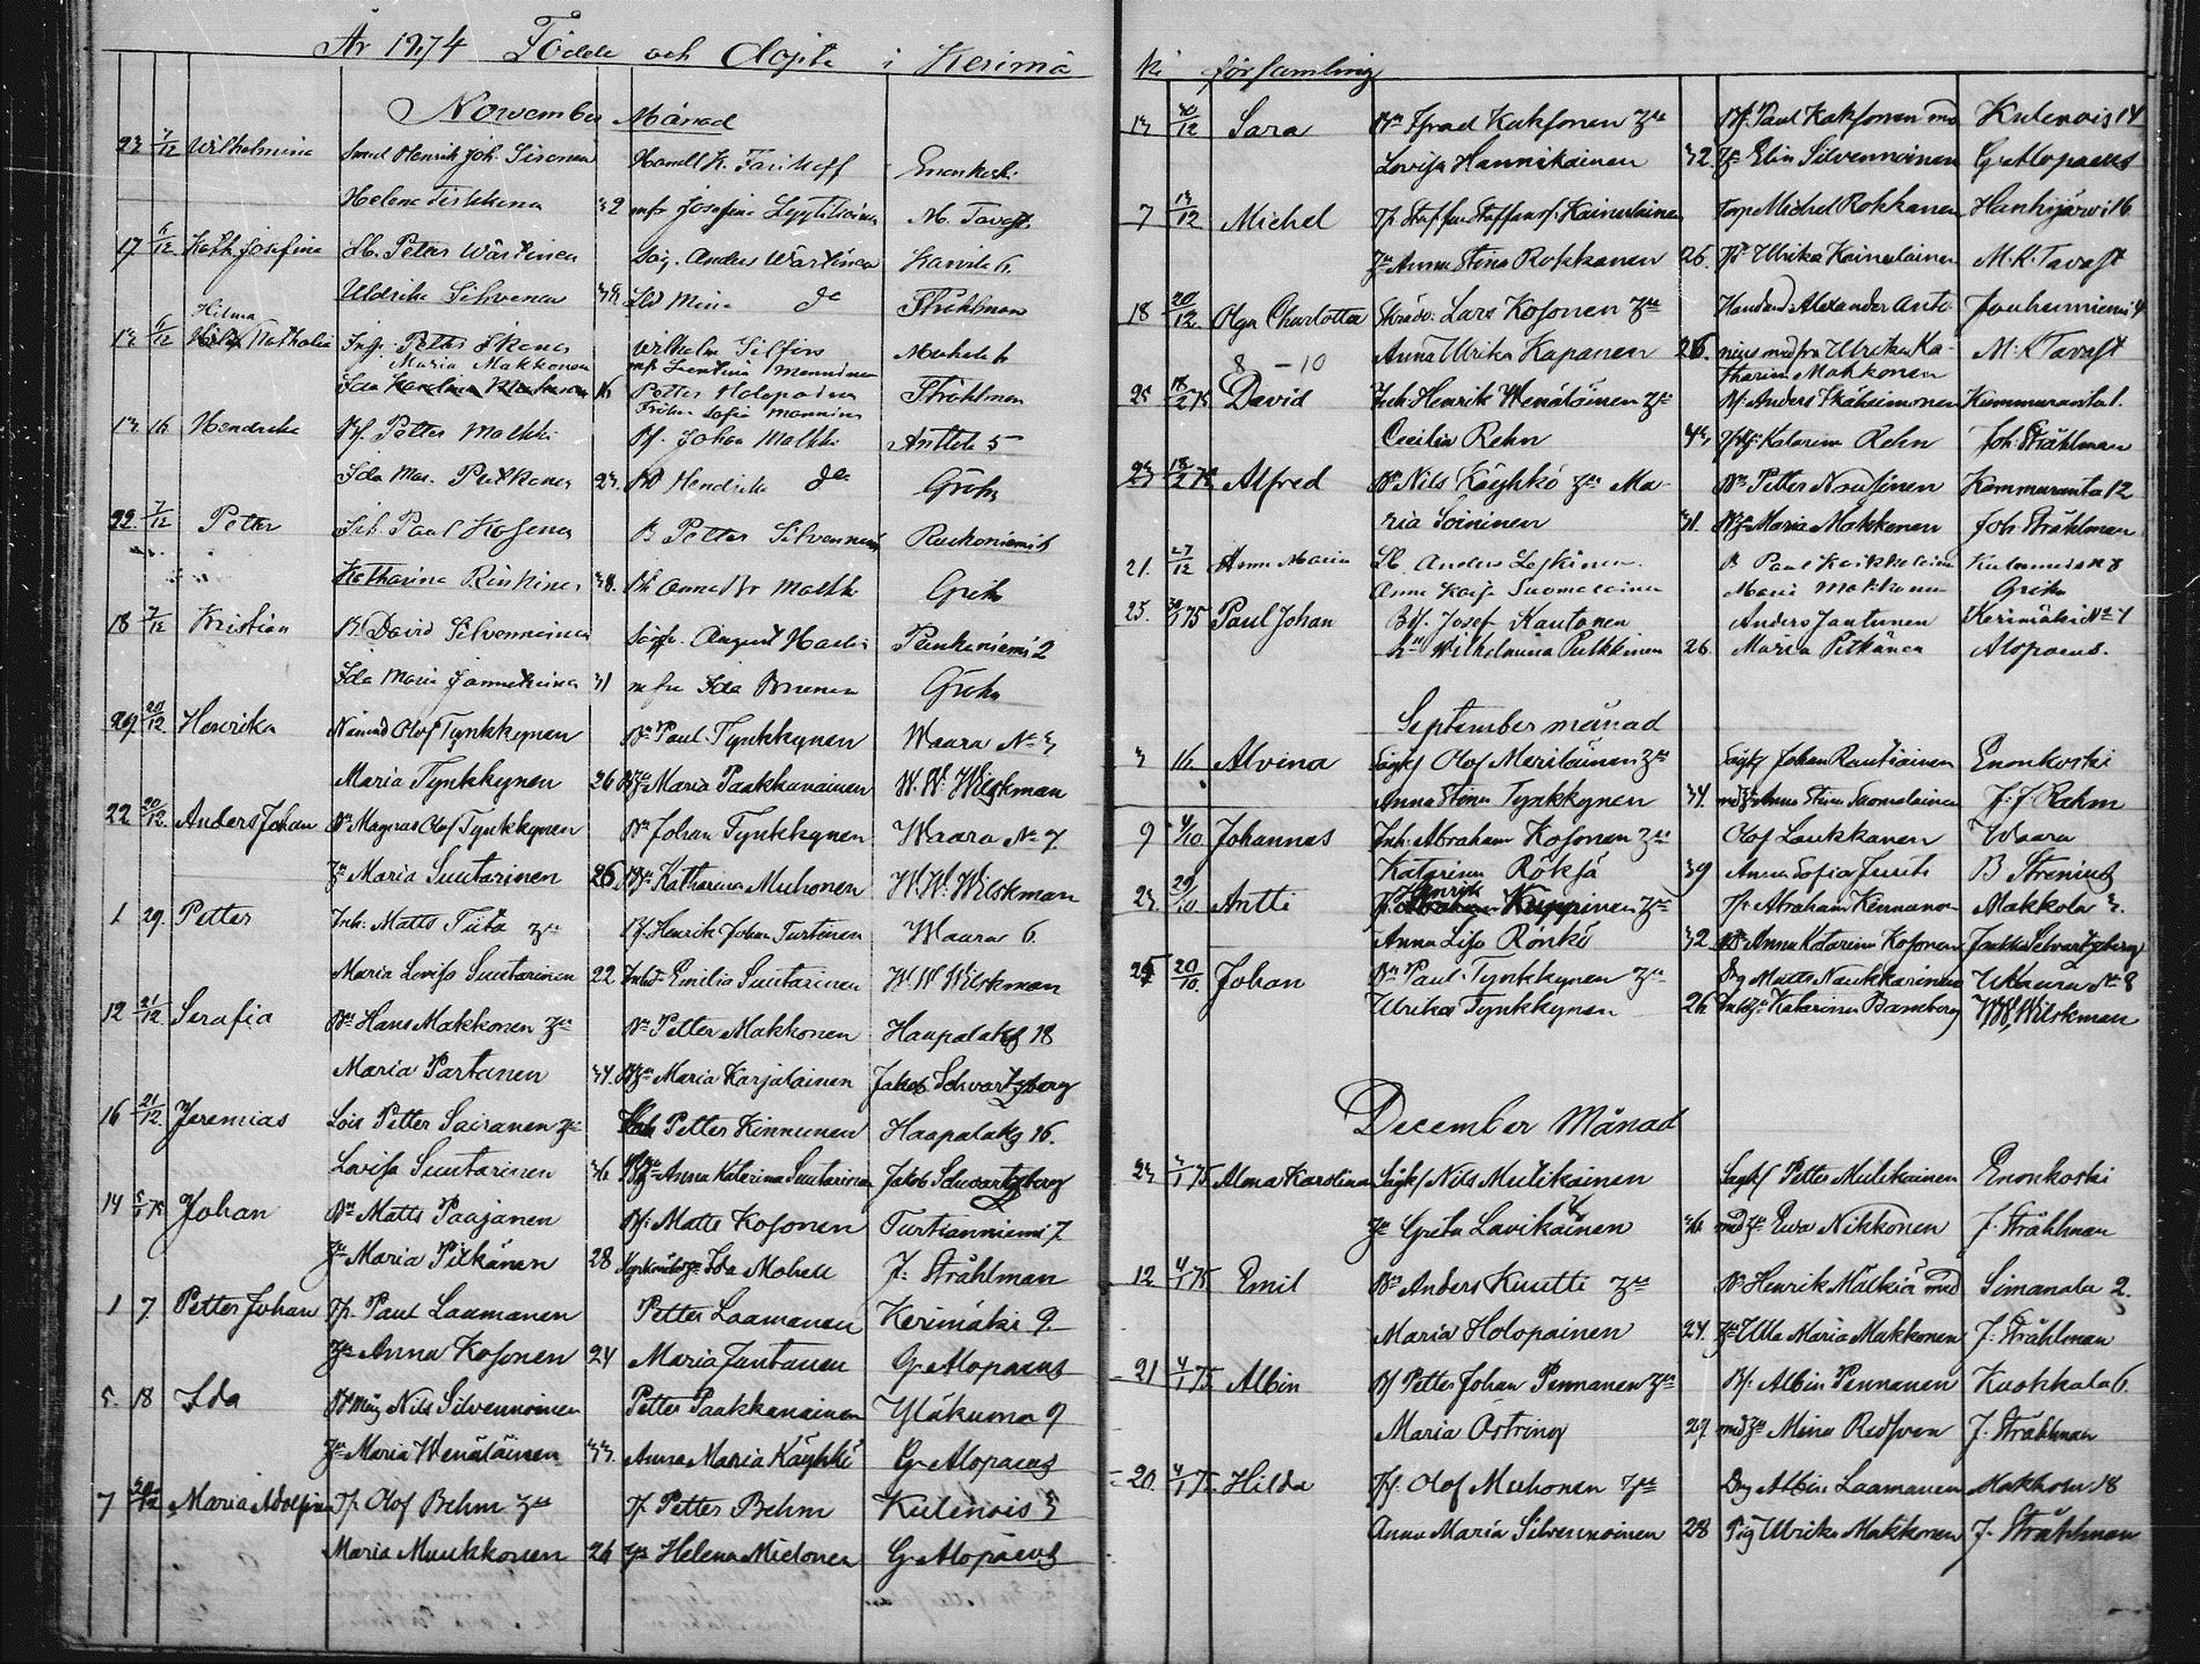 År 1874 Födde och döpte i Kerimä
November Månad
23 7/12 Wilhelmina Smed Henrik Joh. Sirenen Handl. K. Enonkoski
Helena Tirkkona 32 mfr Josefina M. Tavast.
17 6/12 Kath. Josefina Sb. Petter Wärtinen Säg. Anders Wärtinen Karvila 6.
Uldrika Silvenen Mina do Stråhlman
Hilma
13 6/12 Nathalia Ing. Petter Wilhelm Silfors Muhola
Maria Makkonen mfr Manninen
Ida Karolina Petter Holopainen Stråhlman
Fröken Sofia Mannine
13 16 Hendrika Bf. Petter Malkki Bf. Johan Malkki Anttola 5
Ida Mar. Putkonen 23. Hendrika do Gröhn
22. 7/12 Petter Inh. Paul Kosonen B Petter Silvennoinen Ruokoniemi
Katharina Rinkinen 38. Anna Malkki Gröhn
18 7/12 Kristian B. David Silvennoinen August Paukeniemi 2
Ida Maria 31 mfru Ida Gröhn
29. 20/12 Henrika Nämnd Olof Tynkkynen Bn Paul Tynkkynen Waara No 3
Maria Tynkkynen 26 Maria Paakkunainen W. W. Wilskman
22 20/12. Anders Johan Bn Magnus Olof Tynkkynen Bn Johan Tynkkynen Waara No 7.
Maria Suutarinen 26 Katharina Muhonen W. W. Wilskman
1 29. Petter Inh. Matts Tiita Bf. Henrik Johan Turtinen Waara 6.
Maria Lovisa Suutarinen 22 Emilia Suutarinen W. W. Wilskman
12 21/12 Serafia Bn Hans Makkonen Bn Petter Makkonen Haapalaks 18
Maria Partanen 34. Maria Karjalainen Jakob Schvartzberg
16 21/12. Jeremias Lois Petter Sairanen Petter Kinnunen Haapalaks 16.
Lovisa Suutarinen 36 Anna Katerina Suutarinen Jakob Schvartzberg
14 5/1 75 Johan Bn Matts Paajanen Bf. Matts Kosonen Turtianniemi 7.
Maria Pitkänen 28 Ida Mohell J. Stråhlman
1 7. Petter Johan Tp. Paul Laamanen Petter Laamanen Kerimäki 9.
Anna Kosonen 24 Maria Jantunen G. Alopaeus
5. 18 Ida Nils Silvennoinen Petter Paakkunainen Yläkuona 9
Maria Wenäläinen 33. Anna Maria Käyhkö G. Alopaeus
7 20/12 Maria Adolfina Tp. Olof Behm Tp. Petter Behm Kulenois 3
Maria Muukkonen 26 Helena Mielonen G. Alopaeus
ki församling
13 20/12 Sara Bn Kaksonen Bf. Paul Kaksonen md Kulenois 14
Lovisa Hannikainen 32 Elin Silvennoinen G. Alopaeus
7 13/12 Michel Tp. Staffan Staffansf. Kainulainen Torp. Michel Rokkanen Hanhijärvi 16
Anna Stina Rokkanen 26. Ulrika Kainulainen M. K. Tavast
18 20/12. Olga Charlotta Skräd. Lars Kosonen Alexander Anto- Jouhenniemi 4
8 - 10 Anna Ulrika Kapanen 26. nius med fru Ulrika Ka- M. K Tavast
tharina Makkonen
25 18/2 75 David Inh. Henrik Wenäläinen Bf. Anders Ikäheimonen Kummuranta 1.
Cecilia Rehn 43. Katarina Rehn Joh. Stråhlman
23 18/2 75 Alfred Bn Nils Käyhkö Ma- Bn Petter Nousinen Kummuranta 12
ria Soininen 31. Maria Makkonen Joh. Stråhlman
21. 27/12 Anna Maria Sb. Anders Leskinen. B Paul Karkkolainen 8
Anna Kaisa Suomalainen Maria Makkonen Gröhn
25. 30/1 75 Paul Johan Bf. Josef Kautonen Anders Jantunen Kerimäki No 7
Wilhelmina Pulkkinen 26. Maria Pitkänen Alopaeus.
September månad
3 16. Alvina Sägkf Olof Meriläinen Sägkf Johan Rautiainen Enonkoski
Anna Stina Tynkkynen 34. Anna Stina Suomalainen J. J. Rahm
9 4/10. Johannes Inh. Abraham Kosonen Olof Laukkanen Waara
Katarina Rökså 39 Anna Sofia Juuti B Strenius
Henrik
23. 29/10. Antti Tp. Abraham Kuppinen Tp. Abraham Kinnunen Makkola 3.
Anna Lisa Rönkö 32. Anna Katarina Kosonen Jakob Schvartzberg
25 20/10. Johan Bn Paul Tynkkynen Drg Matts Naukkarinen Waara No 8
Ulrika Tynkkynen 26. Katarina Bamberg W. W. Wilskman
December Månad
23 3/1 75 Alma Karolina Sägkf Nils Mulikainen Sägkf Petter Mulikainen Enonkoski
Greta Lavikainen 36 Ewa Nikkonen J. Stråhlman
12 4/1 75 Emil Bn Anders Kuutti Bn Henrik Malkiä med Simanala 2.
Maria Holopainen 24. Ulla Maria Makkonen J. Stråhlman
21 4/1 75. Albin Bf Petter Johan Pennanen Bf. Albin Pennanen Kuokkala 6.
Maria Östring 29. Mina Redsven J. Stråhlman
20. 4/1 75. Hilda Olof Muhonen Drg Albin Laamanen Makkola 18
Anna Maria Silvennoinen 28 Pig Ulrika Makkonen J. Stråhlman